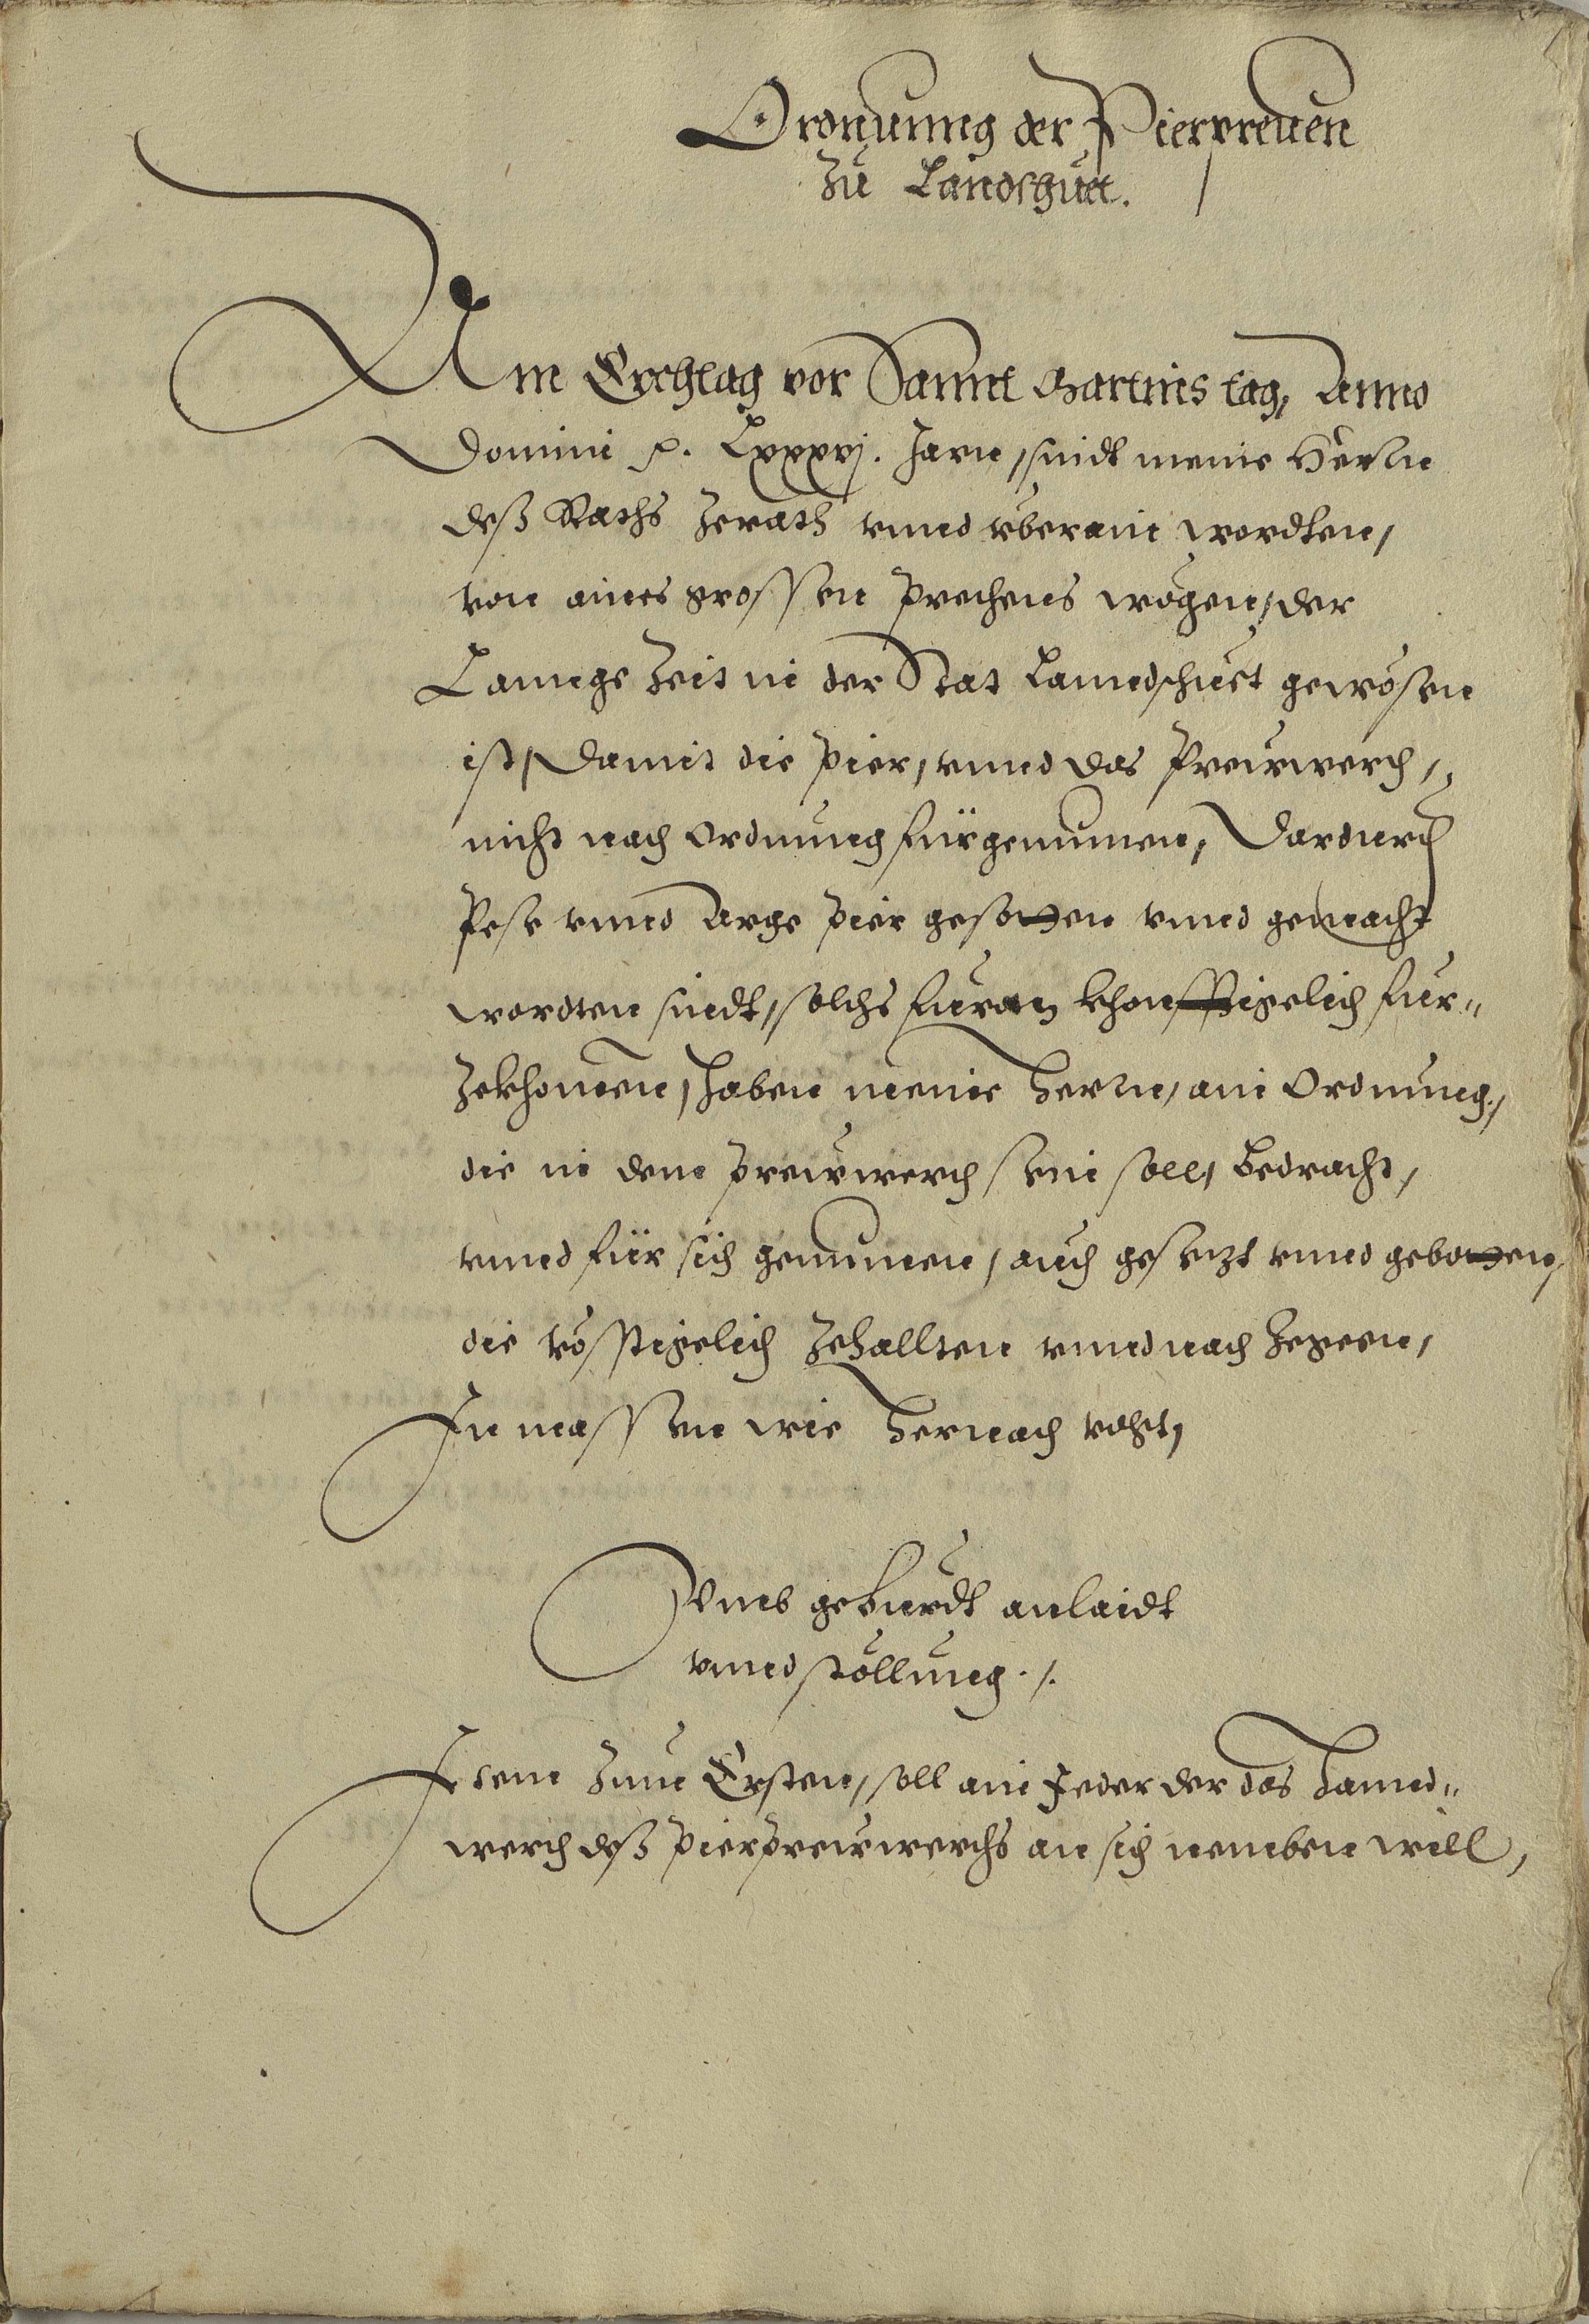 Ordnunng der Pierpreuen
Zu Landshuet.
Am Erchtag vor Sannt Martins tag, Anno
Domini &c. Lxxxvj. Jarn, sindt meine Herrn
deß Raths Zerath vnnd vberain wordten,
von aines grossen prechens wögen, der
Lannge Zeit in der Stat Lanndshuet gewösen
ist, damit die pier, vnnd das Preuwerch,
nicht nach Ordnung fürgenumen, Dardurch
Pese vnnd Arge pier gesotten vnnd gemacht
wordten sindt, solchs furan khonfftigelich für„
Zekhomen, haben meine herrn, ain Ordnung,
die in dem preuwerch sein soll, bedracht,
vnnd für sich genumen, auch gesezt vnnd gebotten,
die vösstigelich Zehallten vnnd nach Zegeen,
In massen wie hernach volgt,
Vmb geburdt anlaidt
vnnd stöllung ./.
Item Zum Ersten, soll ain Jeder der das Hannd„
werch deß pierpreuwerchs an sich nemben will,